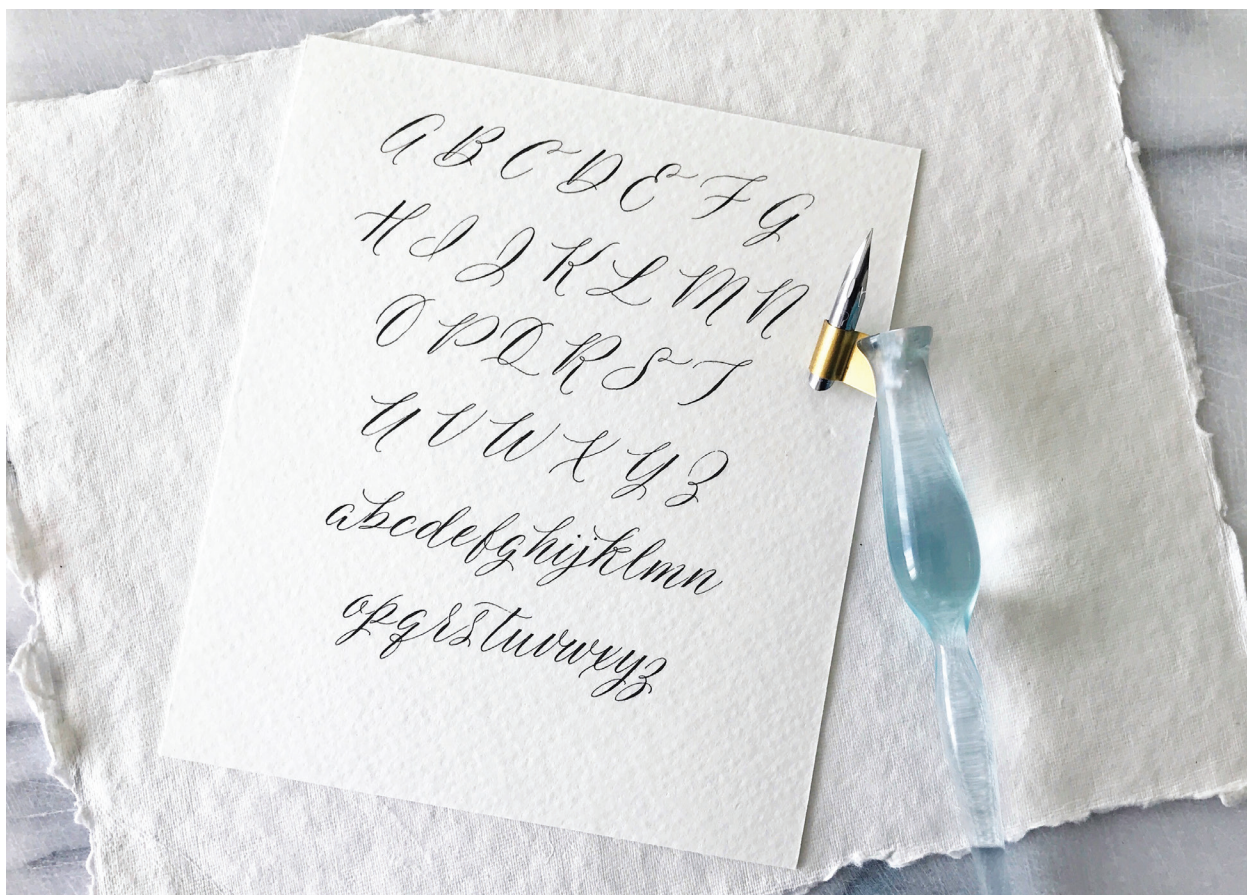 A B C D E F G
H I J K L M N
O P Q R S T
U V W X Y Z
abcdefghijklmn
opqrstuvwxyz